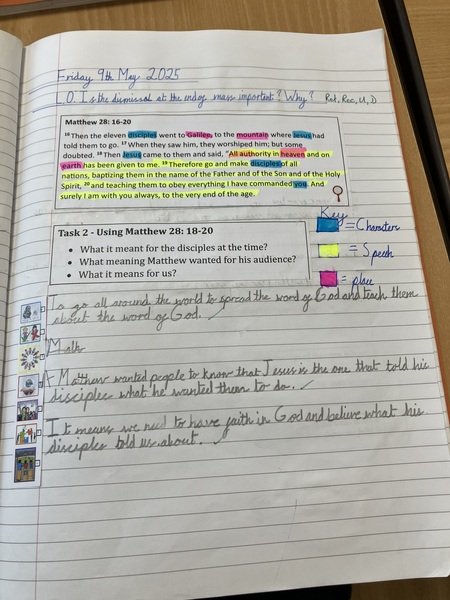 Friday 9th May 2025
L.O. Is the dismissal at the end of mass important? Why? Rel, Rec, U, D
Matthew 28: 16-20
16 Then the eleven disciples went to Galilee, to the mountain where Jesus had
told them to go. 17 When they saw him, they worshiped him; but some
doubted. 18 Then Jesus came to them and said, "All authority in heaven and on
earth has been given to me. 19 Therefore go and make disciples of all
nations, baptizing them in the name of the Father and of the Son and of the Holy
Spirit, 20 and teaching them to obey everything I have commanded you. And
surely I am with you always, to the very end of the age.
Key
= Character
= Speech
= place
Task 2 - Using Matthew 28: 18-20
• What it meant for the disciples at the time?
• What meaning Matthew wanted for his audience?
• What it means for us?
To go all around the world to spread the word of God and teach them
about the word of God.
Math
Matthew wanted people to know that Jesus is the one that told his
disciples what he wanted them to do.
It means we need to have faith in God and believe what his
disciples told us about.